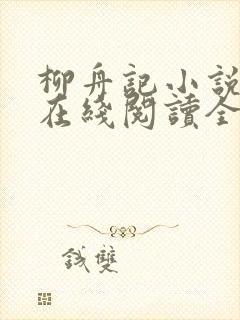 柳舟記小說
在綫閱讀全
錢雙